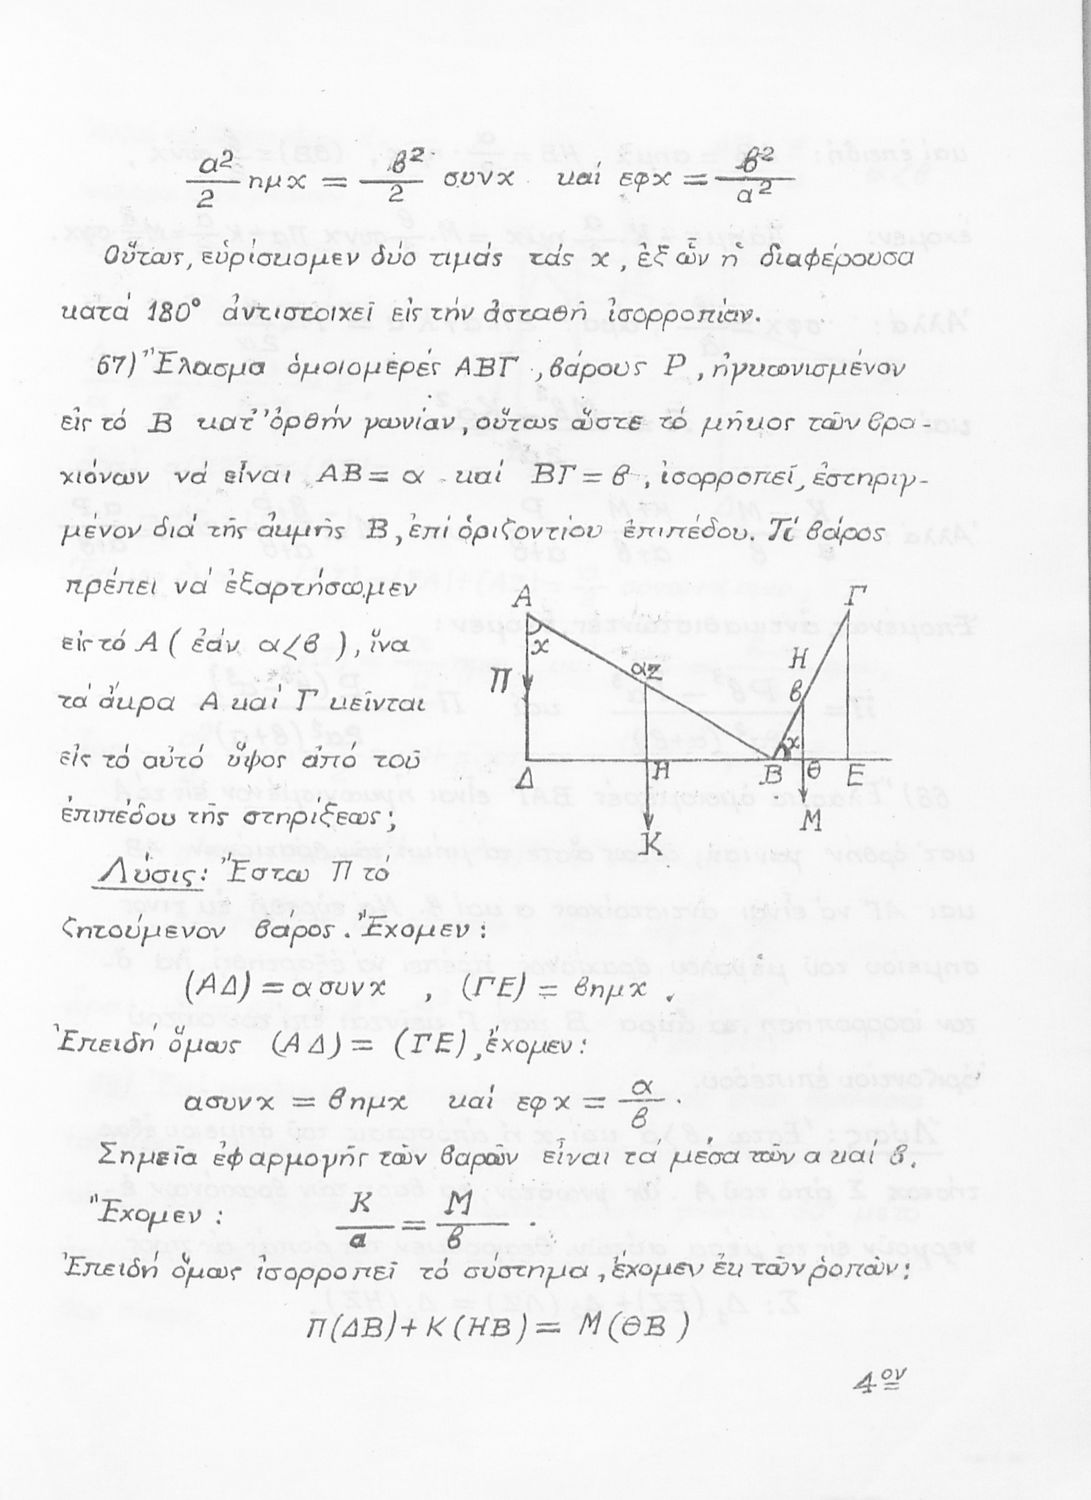 α²/2 ημχ = β²/2 συνχ καί εφχ = β²/α²
Οὕτως, εὑρίσκομεν δύο τιμάς τάς χ, ἐξ ὧν ἡ διαφέρουσα
κατά 180° ἀντιστοιχεῖ εἰς τήν ἀσταθῆ ἰσορροπίαν.
67) Ἔλασμα ὁμοιομερές ΑΒΓ, βάρους Ρ, ἠγκωνισμένον
εἰς τό Β κατ' ὀρθήν γωνίαν, οὕτως ὥστε τό μῆκος τῶν βρα-
χιόνων νά εἶναι ΑΒ = α καί ΒΓ = β, ἰσορροπεῖ, ἐστηριγ-
μένον διά τῆς ἀκμῆς Β, ἐπί ὁριζοντίου ἐπιπέδου. Τί βάρος
πρέπει νά ἐξαρτήσωμεν
εἰς τό Α (ἐάν α<β), ἵνα
τά ἄκρα Α καί Γ κεῖνται
εἰς τό αὐτό ὕψος ἀπό τοῦ
ἐπιπέδου τῆς στηρίξεως;
Α
Γ
χ
Π
αΖ
Η
β
χ
Δ
Η
Β
θ
Ε
Κ
Μ
Λύσις: Ἔστω Π τό
ζητούμενον βάρος. Ἔχομεν:
(ΑΔ) = α συνχ , (ΓΕ) = βημχ .
Ἐπειδή ὅμως (ΑΔ) = (ΓΕ), ἔχομεν:
ασυνχ = βημχ καί εφχ = α/β .
Σημεῖα ἐφαρμογῆς τῶν βαρῶν εἶναι τά μέσα τῶν α καί β.
Ἔχομεν: Κ/α = Μ/β .
Ἐπειδή ὅμως ἰσορροπεῖ τό σύστημα, ἔχομεν ἐκ τῶν ῥοπῶν:
Π(ΔΒ) + Κ(ΗΒ) = Μ(ΘΒ)
4ον